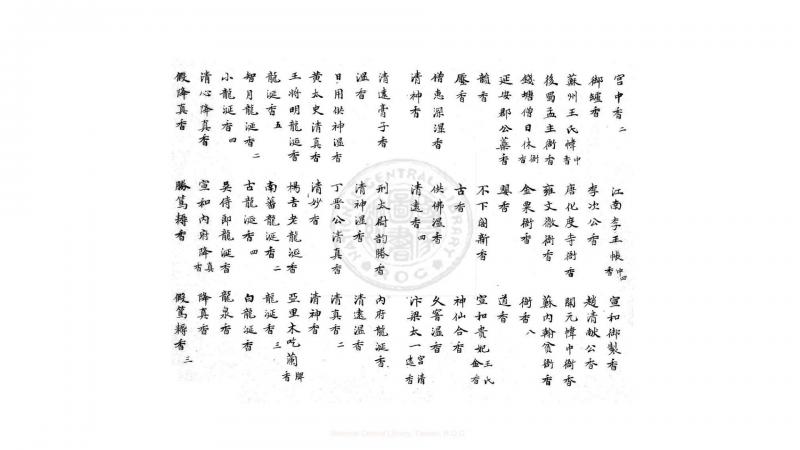 宮中香二　江南李王帳中香四　宣和御製香
御爐香　李次公香　趙清獻公香
蘇州王氏幃中香　唐化度寺衙香　開元幃中衙香
後蜀孟主衙香　雍文徹衙香　蘇內翰貧衙香
錢塘僧日休衙香　金粟衙香　衙香八
延安郡公蘂香　嬰香　道香
韻香　不下閣新香　宣和貴妃王氏金香
壓香　古香　神仙合香
僧惠深溼香　供佛溼香　久窨溼香
清神香　清遠香四　汴梁太一宮清遠香
清遠膏子香　刑太尉韵勝香　內府龍涎香
溼香　清神溼香　清遠溼香
日用供神溼香　丁晉公清真香　清真香二
黃太史清真香　清妙香　清神香
王將明龍涎香　楊吉老龍涎香　亞里木吃蘭牌香
龍涎香五　南蕃龍涎香二　龍涎香三
智月龍涎香二　古龍涎香四　白龍涎香
小龍涎香四　吳侍郎龍涎香　龍泉香
清心降真香　宣和內府降真香　降真香
假降真香　勝篤耨香　假篤耨香三
National Central Library, Taiwan, R.O.C